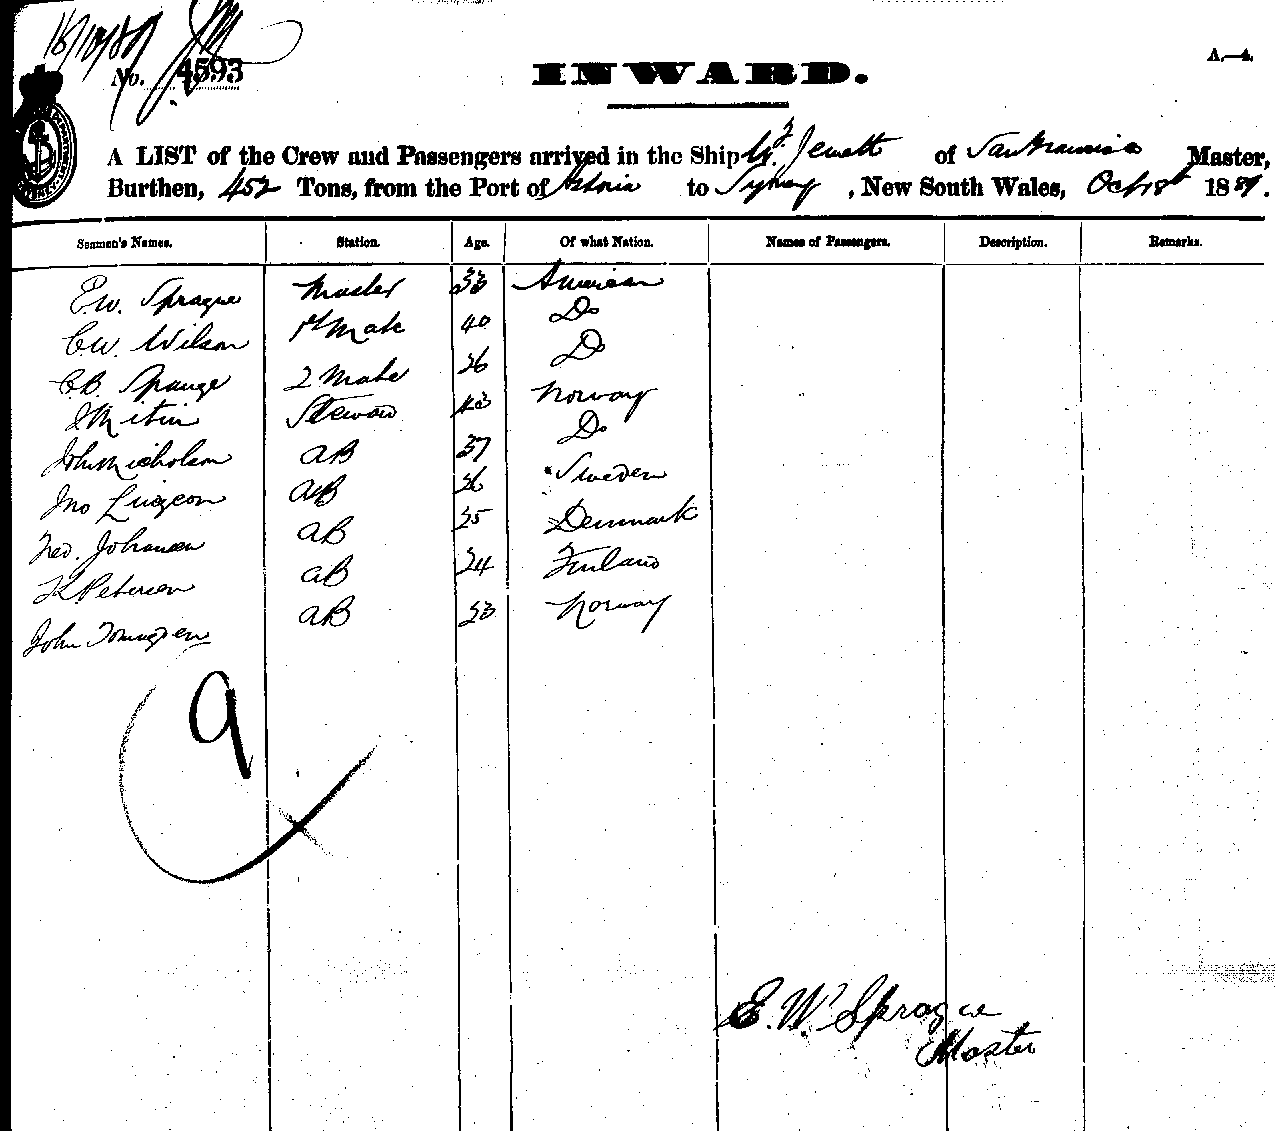 18/10/89
No. 4593
INWARD.
A.—4.
A LIST of the Crew and Passengers arrived in the Ship Wm. Jewett of San Francisco Master,
Burthen, 452 Tons, from the Port of Astoria to Sydney, New South Wales, Oct 18th 1889.
Seamen's Names. Station. Age. Of what Nation. Names of Passengers. Description. Remarks.
E.W. Sprague Master 33 American
C.W. Wilson 1st Mate 40 Do
C.B. Sprauge 2 Mate 26 Do
Steward 43 Norway
John Nicholson AB 37 Do
Jno AB 26 Sweden
Johansen AB 25 Denmark
Petersen AB 24 Finland
John AB 23 Norway
9
E.W. Sprague
Master